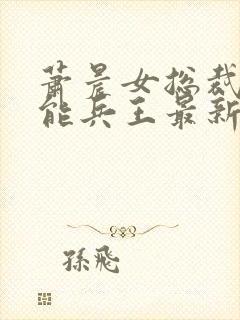 萧晨女总裁
能兵王最新
孙飞